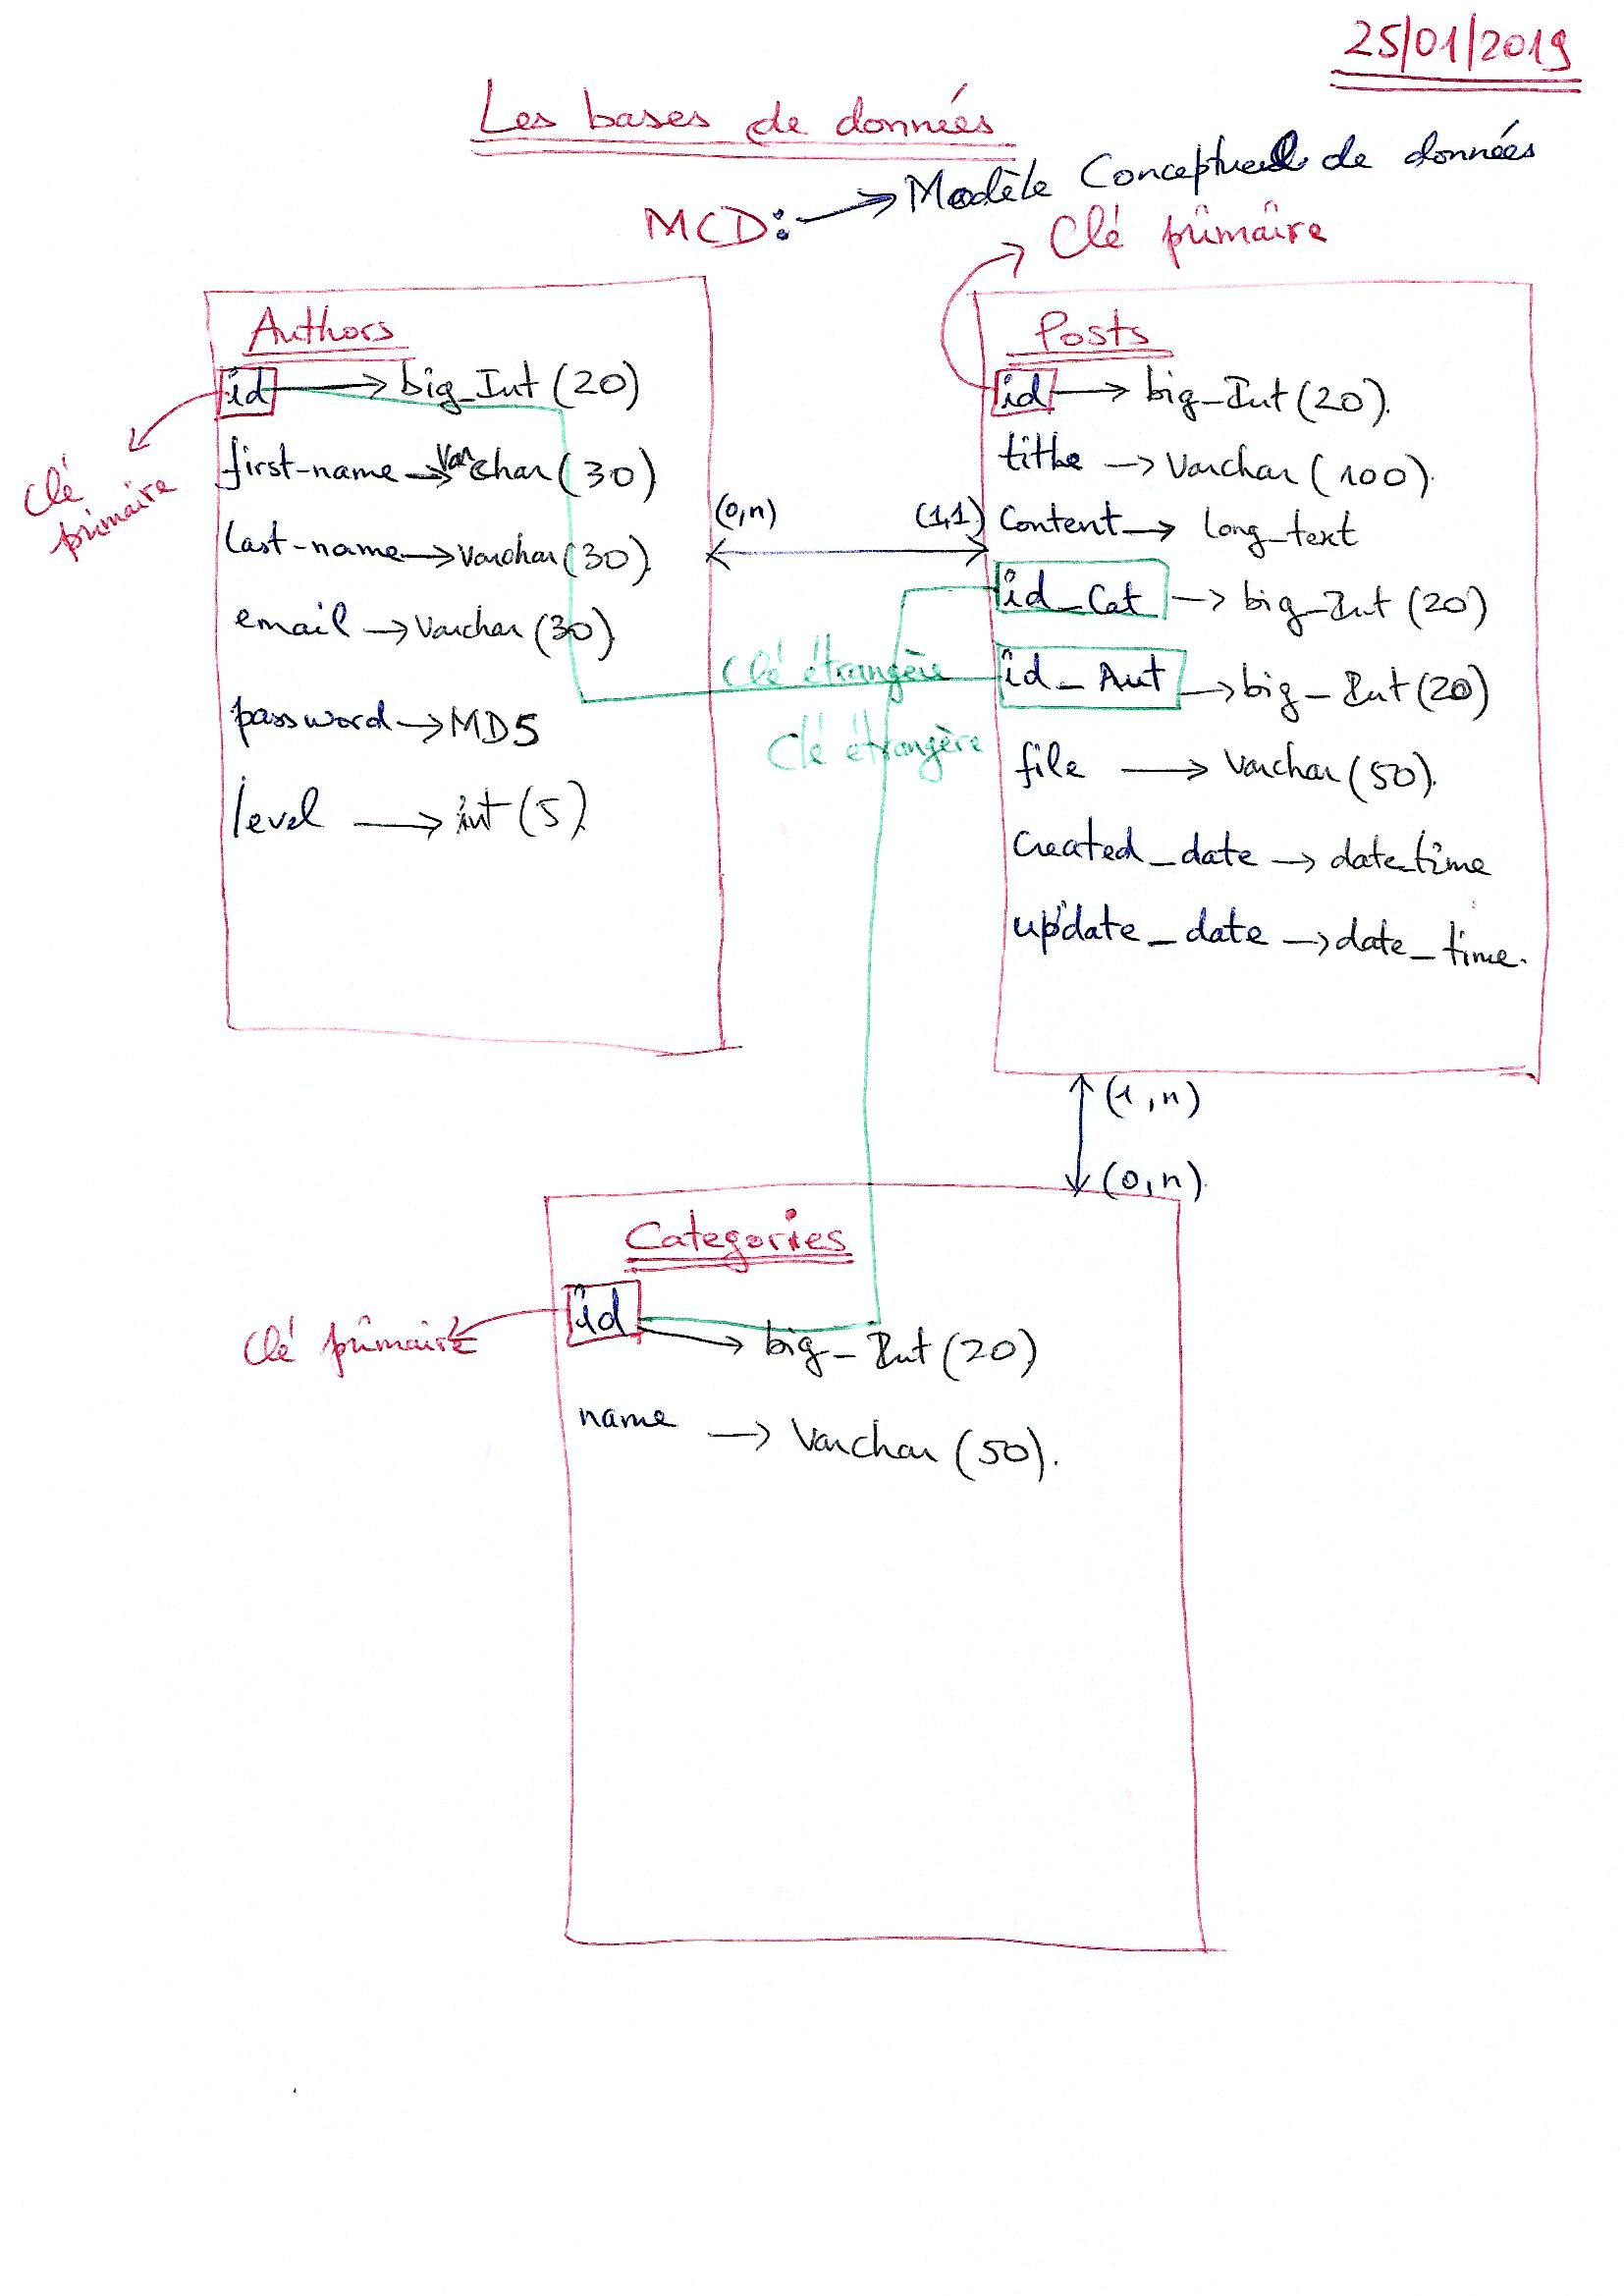 25/01/2019
Les bases de données
MCD: → Modèle Conceptuel de données
Clé primaire
Authors
id → big_Int (20)
first-name → Varchar (30)
last-name → Varchar (30)
email → Varchar (30)
password → MD5
level → int (5)
Clé
primaire
(0,n)
(1,1)
Clé étrangère
Clé étrangère
Posts
id → big_Int (20).
tithe → Varchar (100).
Content → long_text
id_Cat → big_Int (20)
id_Aut → big_Int (20)
file → Varchar (50).
Created_date → date_time
update_date → date_time.
(1,n)
(0,n).
Categories
Clé primaire
id → big_Int (20)
name → Varchar (50).